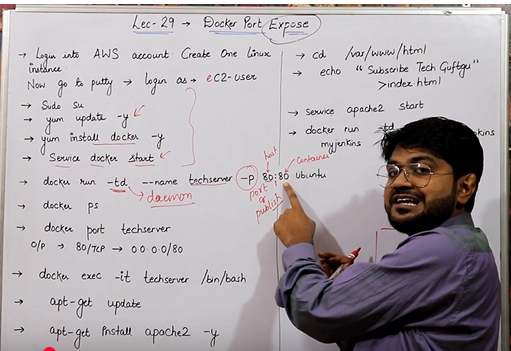 Lec-29 → Docker Port Expose
→ Login into AWS account. Create One Linux
instance
Now go to putty → login as → ec2-user
→ Sudo su
→ yum update -y
→ yum install docker -y
→ Service docker start
host
container
→ docker run -td --name techserver -p 80:80 ubuntu
daemon
port
or
publish
→ docker ps
→ docker port techserver
O/P → 80/TCP → 0.0.0.0/80
→ docker exec -it techserver /bin/bash
→ apt-get update
→ apt-get install apache2 -y
→ cd /var/www/html
→ echo "Subscribe Tech Guftgu"
>index.html
→ Service apache2 start
→ docker run -td
myjenkins